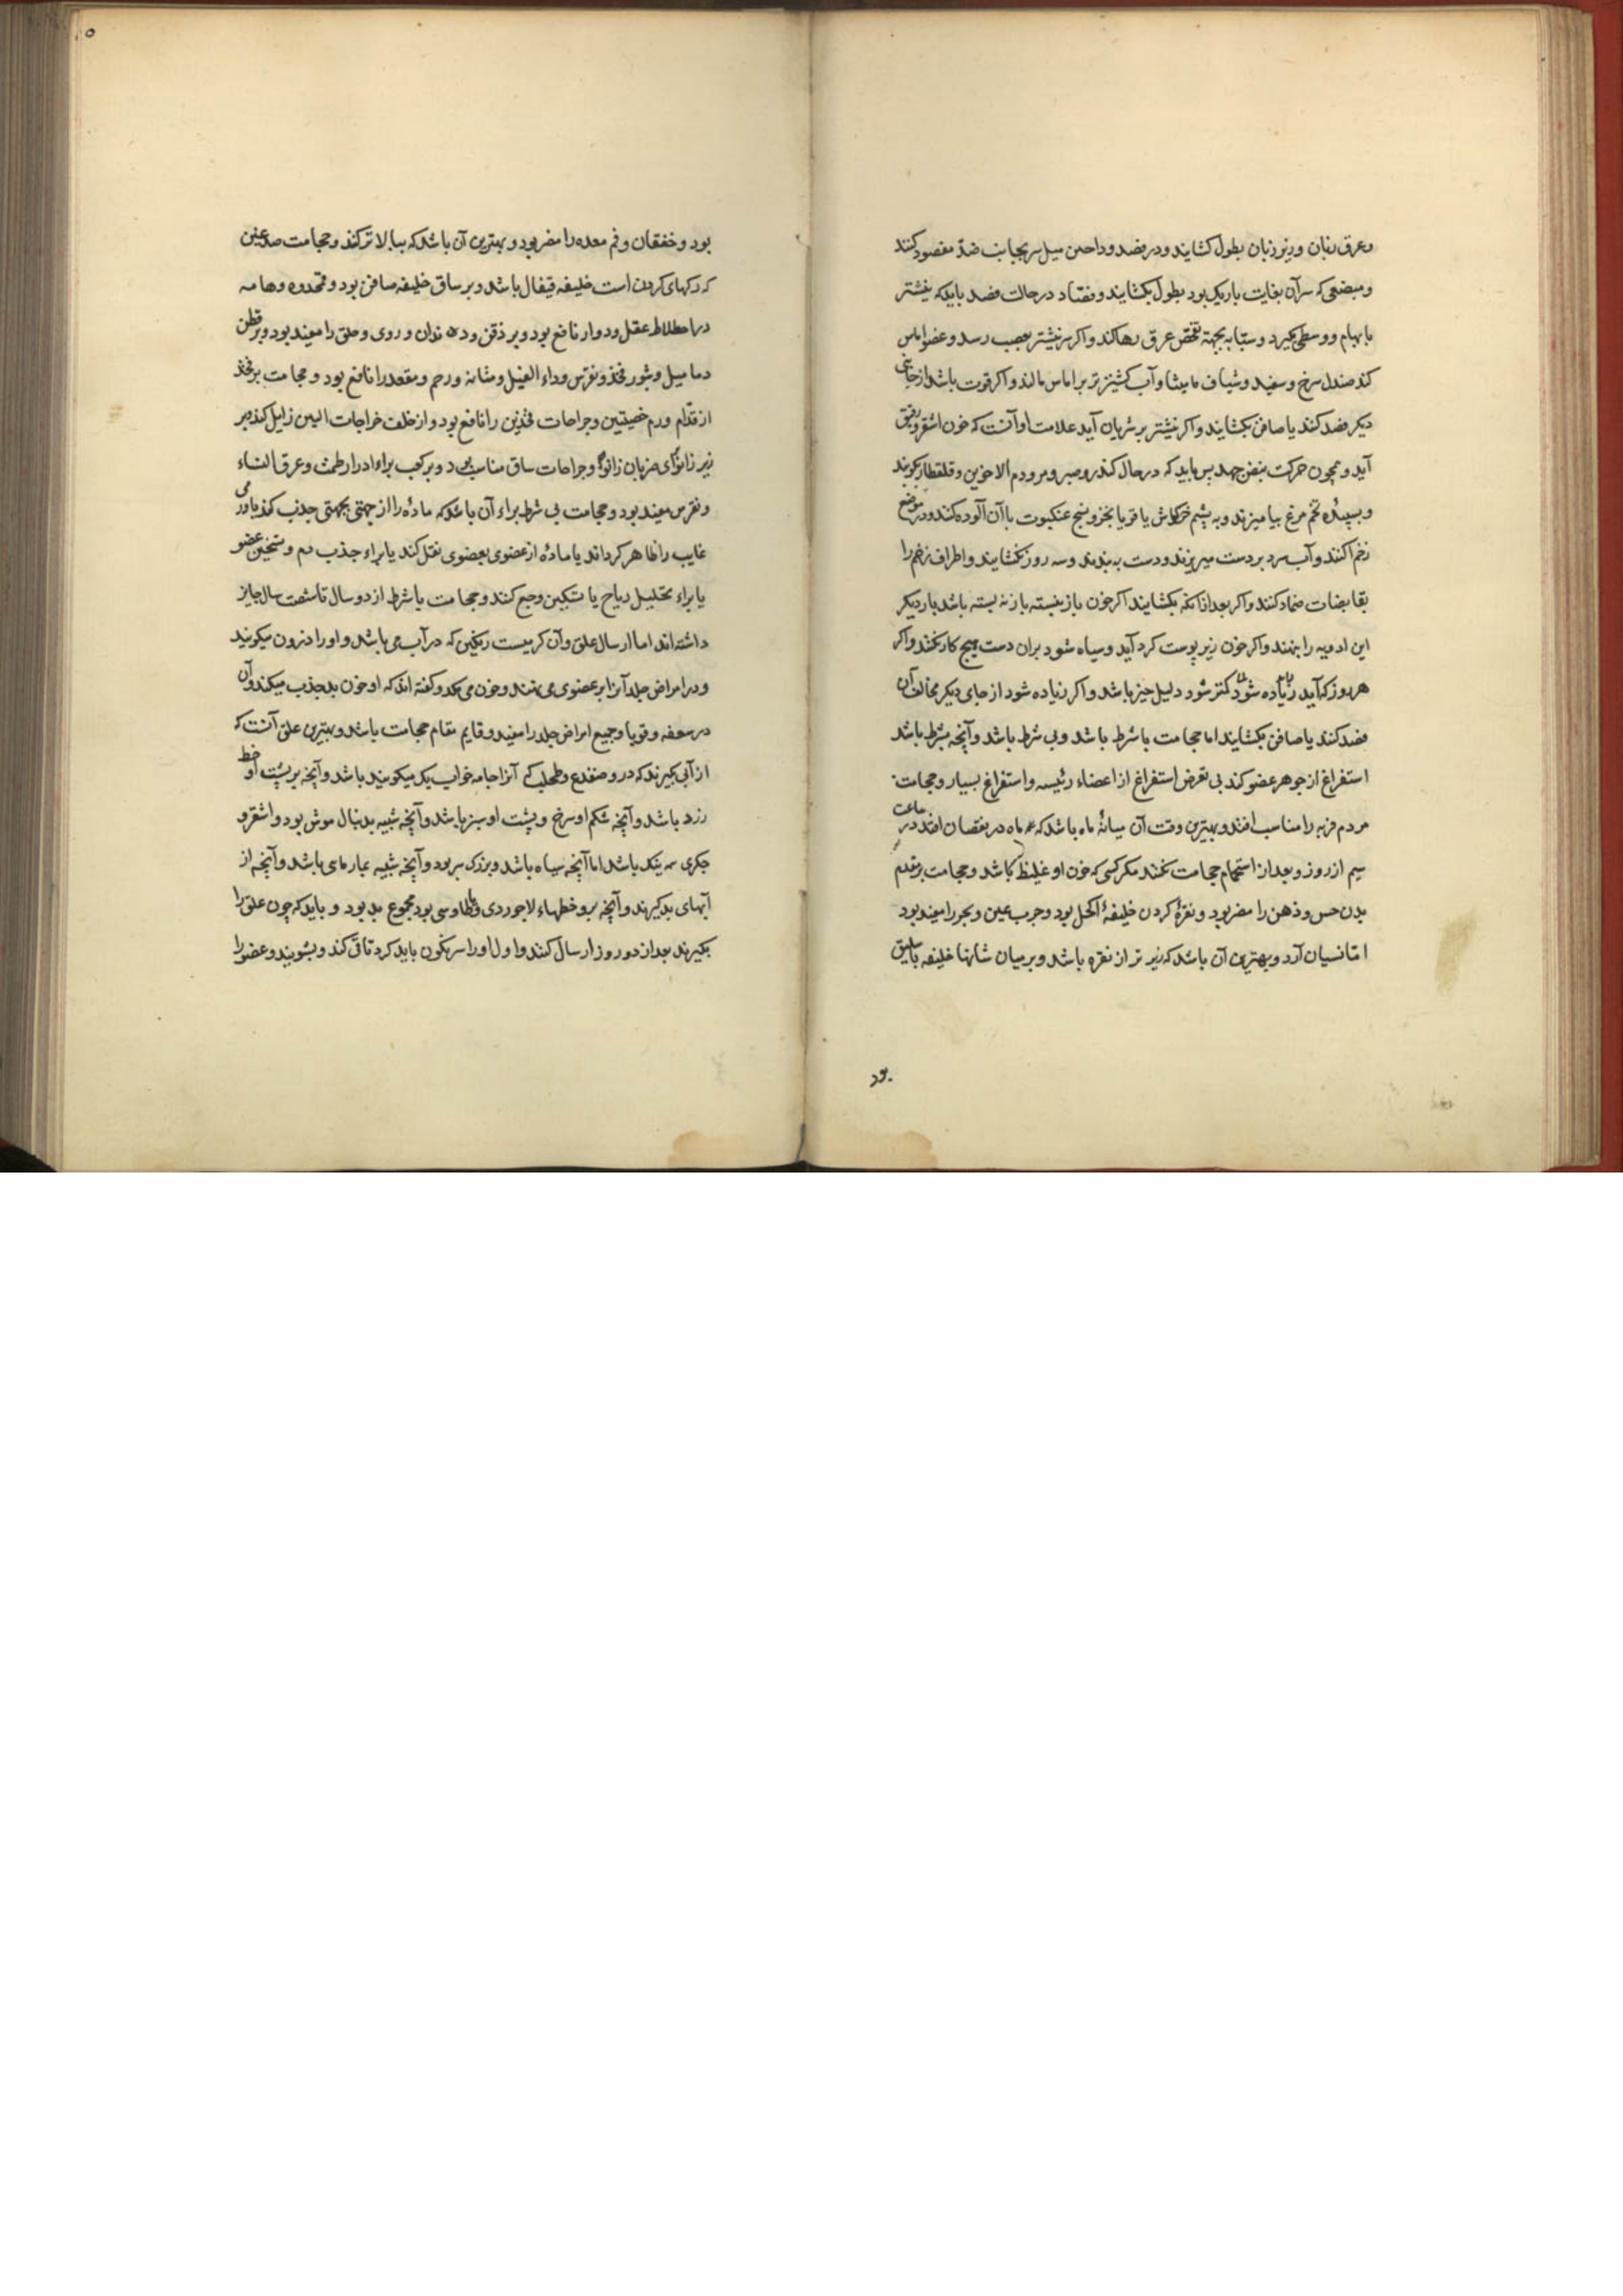 وعرق زبان و زیر زبان بطول کشایند و در فصد وداجین میل سر بجانب ضد مقصود کنند
ومبضعی که سر آن بغایت باریک بود بطول بکشایند و فصاد در حالت فصد باید که نیشتر
بابهام و وسطی بگیرد و سبابه بجهة تفحص عرق رها کند و اکر سر نیشتر بعصب رسد و عضو اماس
کند صندل سرخ و سفید و شیاف مامیثا و آب کشنیز تر بر اماس مالند و اکر قوت باشد از جانبی
دیکر فصد کنند یا صافن بکشایند و اکر نیشتر بر شریان آید علامت او آنست که خون اشقر و رقیق
آید و همچون حرکت نبض جهد پس باید که در حال کندر و صبر و مر و دم الاخوین و قلقطار بکوبند
و بسپیده تخم مرغ بیامیزند و به پشم خرکوش یا قز یا بخز و نسج عنکبوت باآن آلوده کنند و در موضع
زخم اکنند و آب سرد بر دست میریزند و دست به بندند و سه روز نکشایند و اطراف زخم را
بقابضات ضماد کنند و اکر بعد از انکه بکشایند اکر خون باز نیسته باز نه بسته باشد بار دیکر
این ادویه را بنهند و اکر خون زیر پوست کرد آید و سیاه شود بران دست هیچ کار نکنند و اکر
هر روز که آید زیاده شود کمتر شود دلیل خیر باشد و اکر زیاده شود از جای دیکر مخالف آن
فصد کنند یا صافن بکشایند اما حجامت با شرط باشد و بی شرط باشد و آنچه بشرط باشد
استفراغ از جوهر عضو کند بی تعرض استفراغ از اعضاء رئیسه و استفراغ بسیار و حجامت
مردم فربه را مناسب افتد و بهترین وقت آن میانهٔ ماه باشد که ماه در نقصان افتد در ساعت
سیم از روز و بعد از استحمام حجامت نکنند مکر کسی که خون او غلیظ باشد و حجامت بر مقدم
بدن حس و ذهن را مضر بود و نقرهٔ کردن خلیفهٔ اکحل بود و جرب عین و بخر را مفید بود
اما نسیان آرد و بهترین آن باشد که زیر تر از نقره باشد و بر میان شانها خلیفه باسلیق
بود
بود و خفقان و فم معده را مضر بود و بهترین آن باشد که ببالاتر کنند و حجامت صدغین
که رکهای کردن است خلیفه قیفال باشد و بر ساق خلیفه صافن بود و قمحدوه و هامه
در اختلاط عقل و دوار نافع بود و بر ذقن و دندان و روی و حلق را مفید بود و بر قطن
دمامیل و بثور فخذ و نقرس و داء الفیل و مثانه و رحم و مقعد را نافع بود و حجامت بر فخذ
از قدام ورم خصیتین و جراحات فخذین را نافع بود و از خلف خراجات الیین زایل کند و بر
زیر زانو ضربان زانو و جراحات ساق مناسب بود و بر کعب براء ادرار طمث و عرق النساء
و نقرس مفید بود و حجامت بی شرط براء آن باشد که ماده را از جهتی بجهتی جذب کند یا ورمی
غایب را ظاهر کرداند یا ماده از عضوی بعضوی نقل کند یا براء جذب دم و تسخین عضو
یا براء تحلیل ریاح یا تسکین وجع کنند و حجامت با شرط از دو سال تا شصت سال جایز
داشته اند اما ارسال علق و آن کرمیست رنکین که در آب می باشد و او را دنرون میکویند
و در امراض جلد آنرا بر عضوی می نهند و خون می مکد و کفته اند که او خون بد جذب میکند و آن
در سعفه و قوبا و جمیع امراض جلد را مفید و قایم مقام حجامت باشد و بهترین علق آنست که
از آبی کیرند که در و ضفدع و طحلب که آنرا جامه خواب بک میکویند باشد و آنچه بر پشت او خط
زرد باشد و آنچه شکم او سرخ و پشت او سبز باشد و آنچه شبیه بدنبال موش بود و اشقر و
جکری رنک باشد اما آنچه سیاه باشد و بزرک سر بود و آنچه شبیه بمار ماهی باشد و آنچه از
آبهای بد کیرند و آنچه برو خطهاء لاجوردی و طاوسی بود مجموع بد بود و باید که چون علق را
بکیرند بعد از دو روز ارسال کنند و اول او را سرنکون باید کرد تا قی کند و بشویند و عضو را